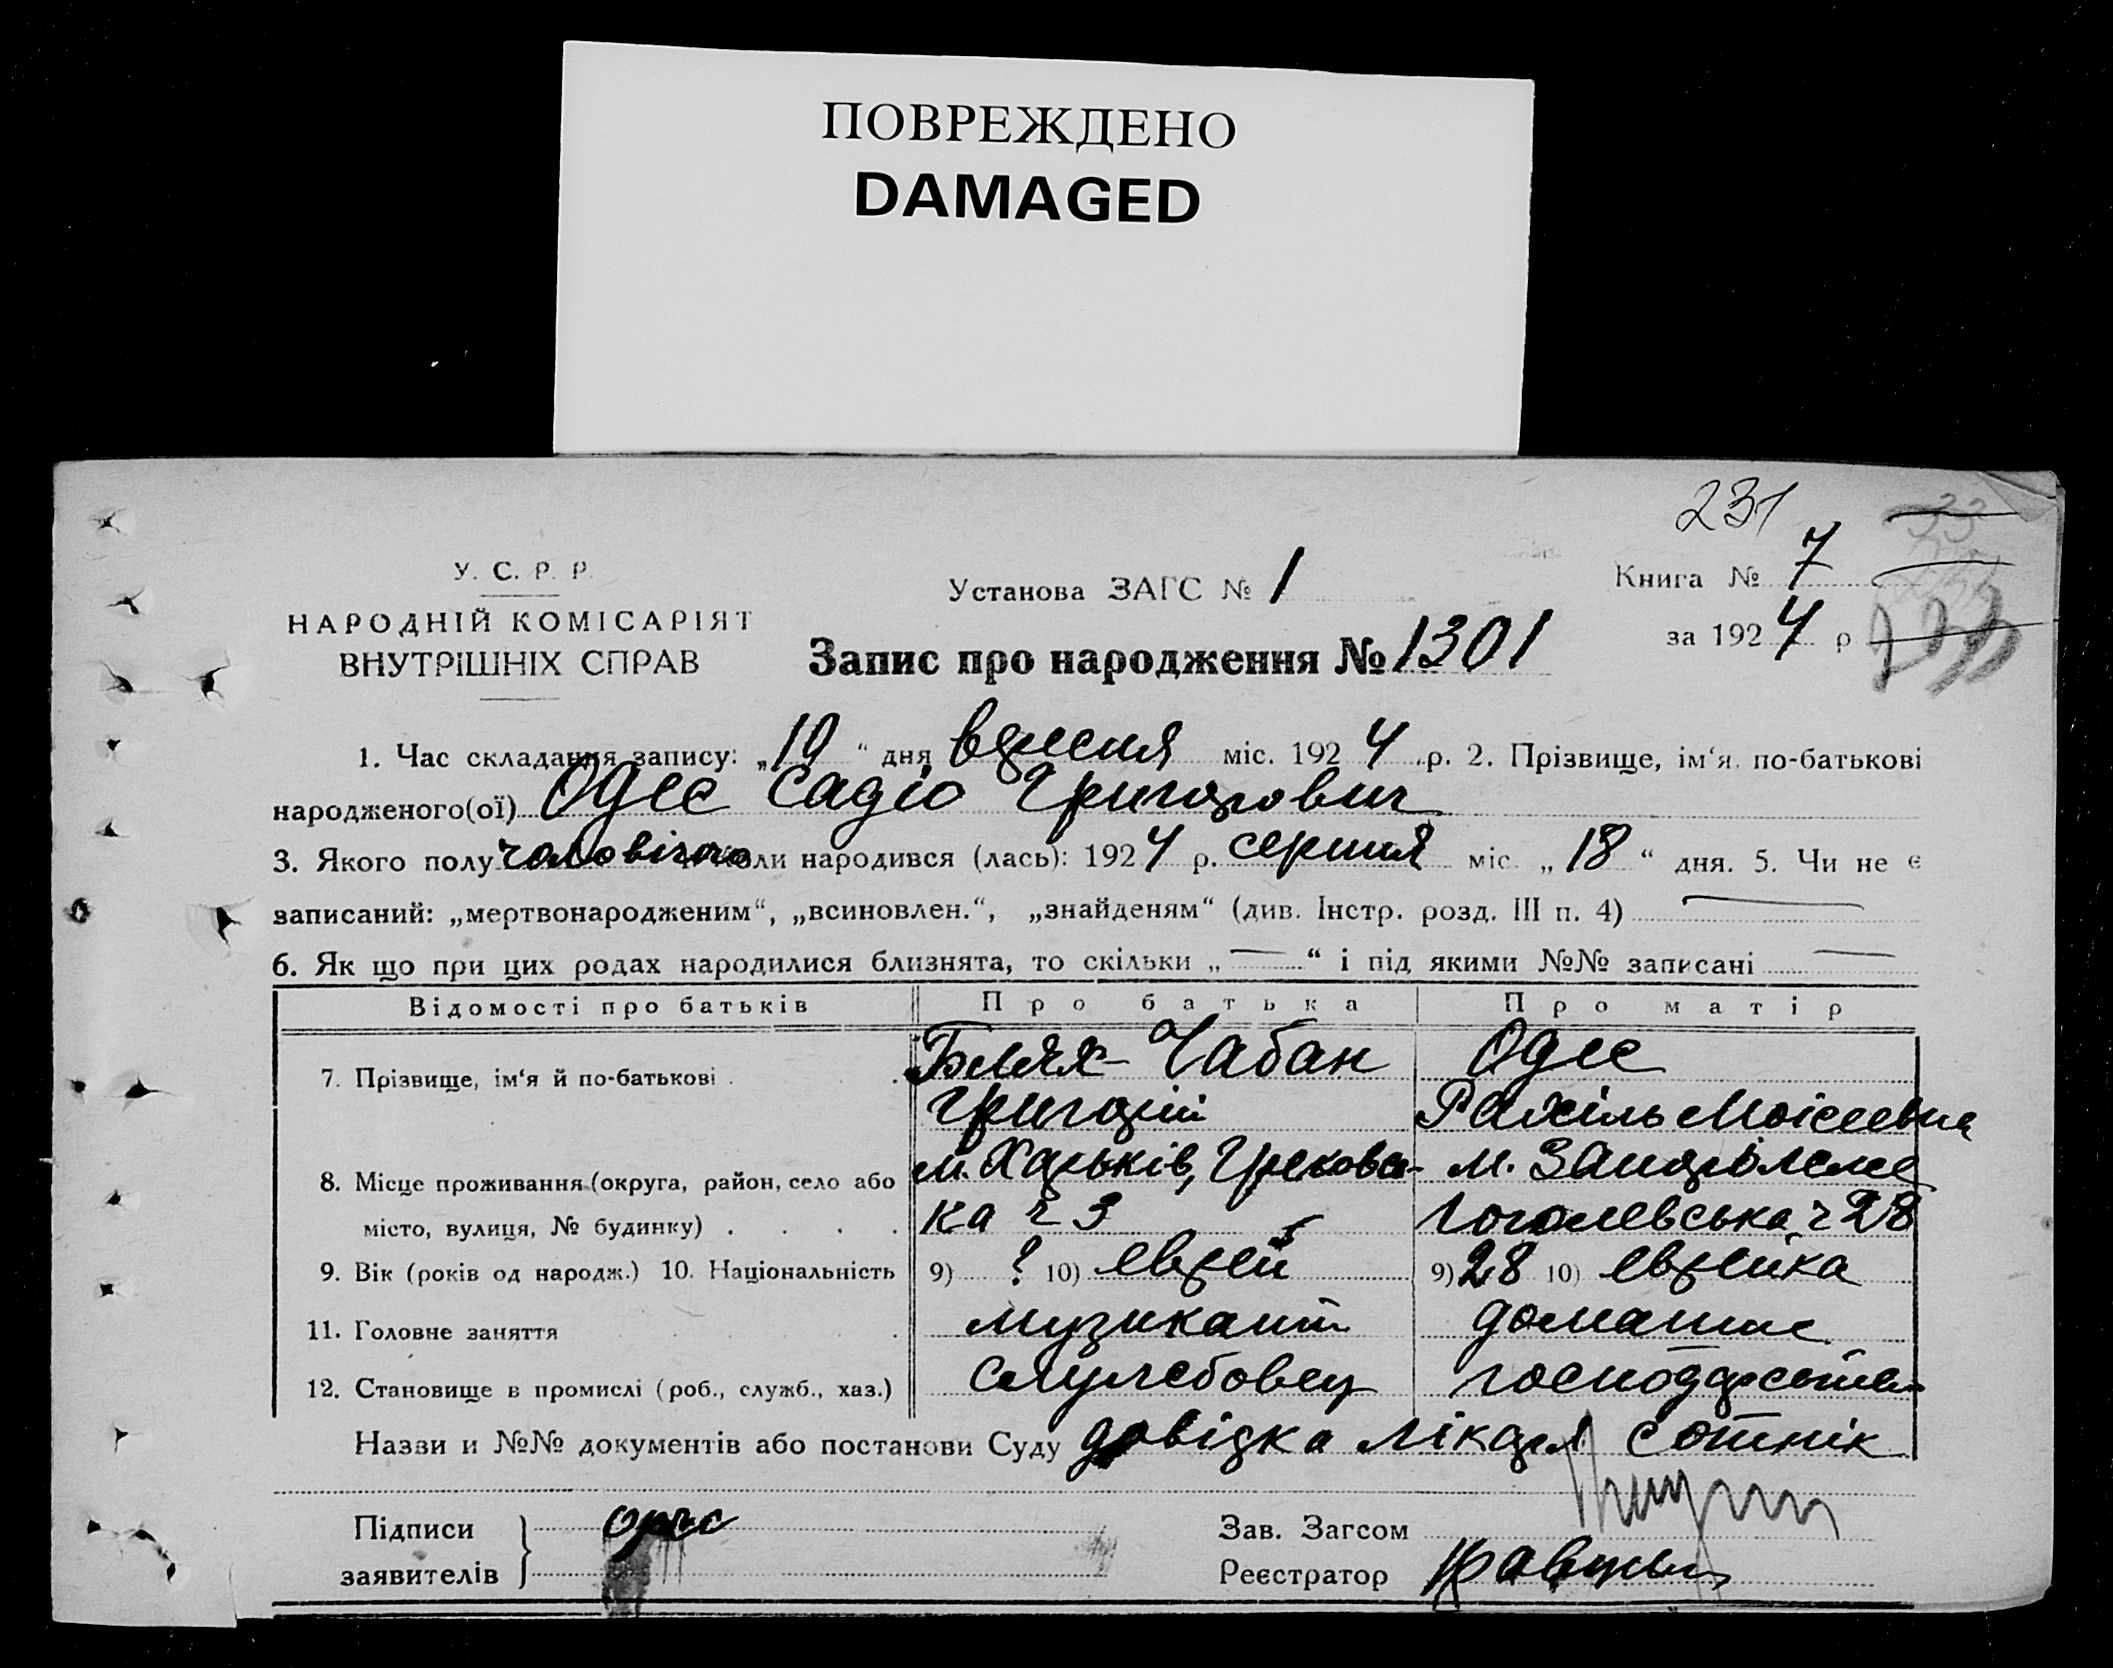 ПОВРЕЖДЕНО
DAMAGED
231
У. С. Р. Р.
НАРОДНІЙ КОМІСАРІЯТ
ВНУТРІШНІХ СПРАВ
Установа ЗАГС № 1
Книга № 7
за 1924 р
Запис про народження № 1301
1. Час складання запису: „10“ дня вересня міс. 1924 р. 2. Прізвище, ім‘я по-батькові
народженого(ої) Одес Садіо Григорович
3. Якого полу чоловічого коли народився (лась): 1924 р. серпня міс. „18“ дня. 5. Чи не є
записаний: „мертвонародженим“, „всиновлен.“, „знайденям“ (див. Інстр. розд. III п. 4) —
6. Як що при цих родах народилися близнята, то скільки „—“ і під якими №№ записані —
Відомості про батьків Про батька Про матір
7. Прізвище, ім‘я й по-батькові . . Бллх-Чабан Одес
Григорій Рахіль Моісеевна
8. Місце проживання (округа, район, село або м. Харьків, Грековс- м. Запоріжже
місто, вулиця, № будинку) . . . . ка ч 3 Гоголевська, ч 28
9. Вік (років од народж.) 10. Національність 9) ? 10) еврей 9) 28 10) еврейка
11. Головне заняття . музикант домашне
12. Становище в промислі (роб., служб., хаз.) службовец господарство
Назви и №№ документів або постанови Суду довідка лікаря Сотнік
Підписи
заявителів
Одес
Зав. Загсом
Реєстратор Кравцы